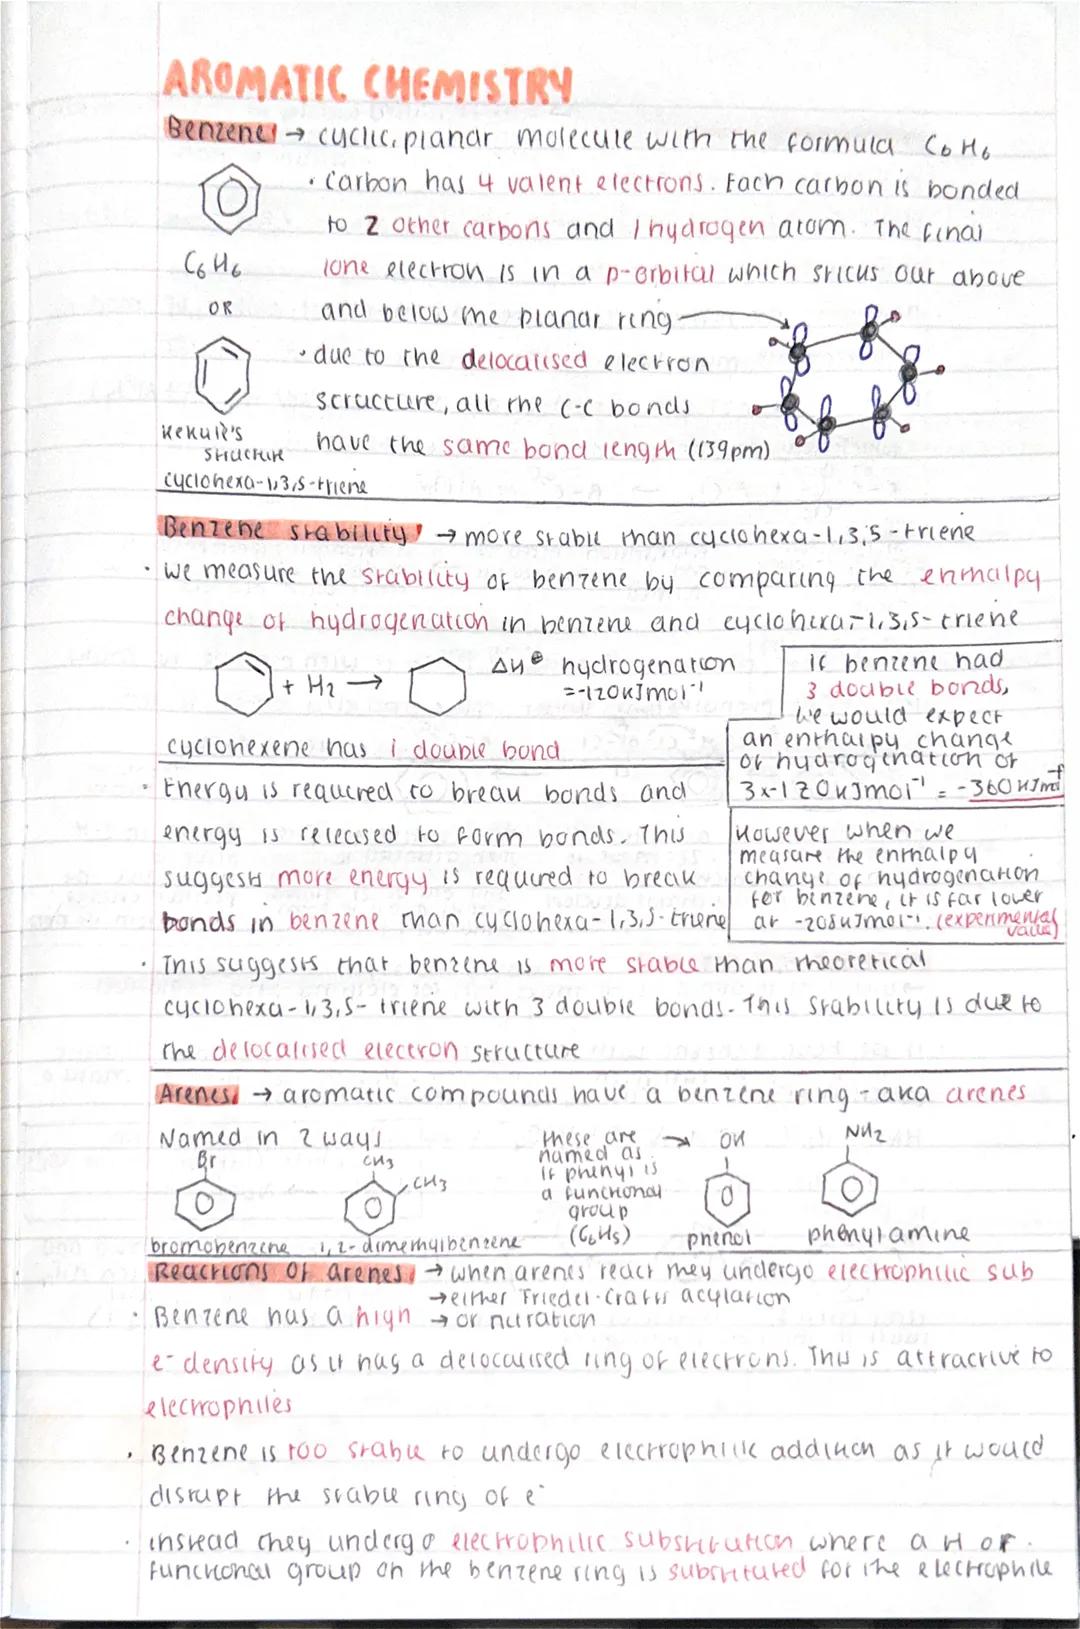 AROMATIC CHEMISTRY
Benzene → cyclic, planar molecule with the formula C6H6
· Carbon has 4 valent electrons. Each carbon is bonded
to 2 other carbons and 1 hydrogen atom. The final
C6H6
lone electron is in a p-orbital which sticks out above
OR
and below the planar ring
· due to the delocalised electron
structure, all the C-C bonds
Kekulé's
structure
have the same bond length (139pm)
cyclohexa-1,3,5-triene
Benzene stability → more stable than cyclohexa-1,3,5-triene
· We measure the stability of benzene by comparing the enthalpy
change of hydrogenation in benzene and cyclohexa-1,3,5-triene
+ H2 → ΔH⊖ hydrogenation
=-120kJmol-1
cyclohexene has 1 double bond
If benzene had
3 double bonds,
we would expect
an enthalpy change
of hydrogenation of
3x-120kJmol-1 = -360kJmol-1
· Energy is required to break bonds and
energy is released to form bonds. This
suggests more energy is required to break
bonds in benzene than cyclohexa-1,3,5-triene
However when we
measure the enthalpy
change of hydrogenation
for benzene, it is far lower
at -208kJmol-1. (experimental
value)
· This suggests that benzene is more stable than theoretical
cyclohexa-1,3,5-triene with 3 double bonds. This stability is due to
the delocalised electron structure
Arenes → aromatic compounds have a benzene ring - aka arenes
Named in 2 ways
Br
CH3
CH3
bromobenzene
1,2-dimethylbenzene
these are →
named as
if phenyl is
a functional
group
(C6H5)
OH
phenol
NH2
phenylamine
Reactions of arenes → when arenes react they undergo electrophilic sub
→ either Friedel-Crafts acylation
→ or nitration
· Benzene has a high
e- density as it has a delocalised ring of electrons. This is attractive to
electrophiles
· Benzene is too stable to undergo electrophilic addition as it would
disrupt the stable ring of e-
· instead they undergo electrophilic substitution where a H or
functional group on the benzene ring is substituted for the electrophile